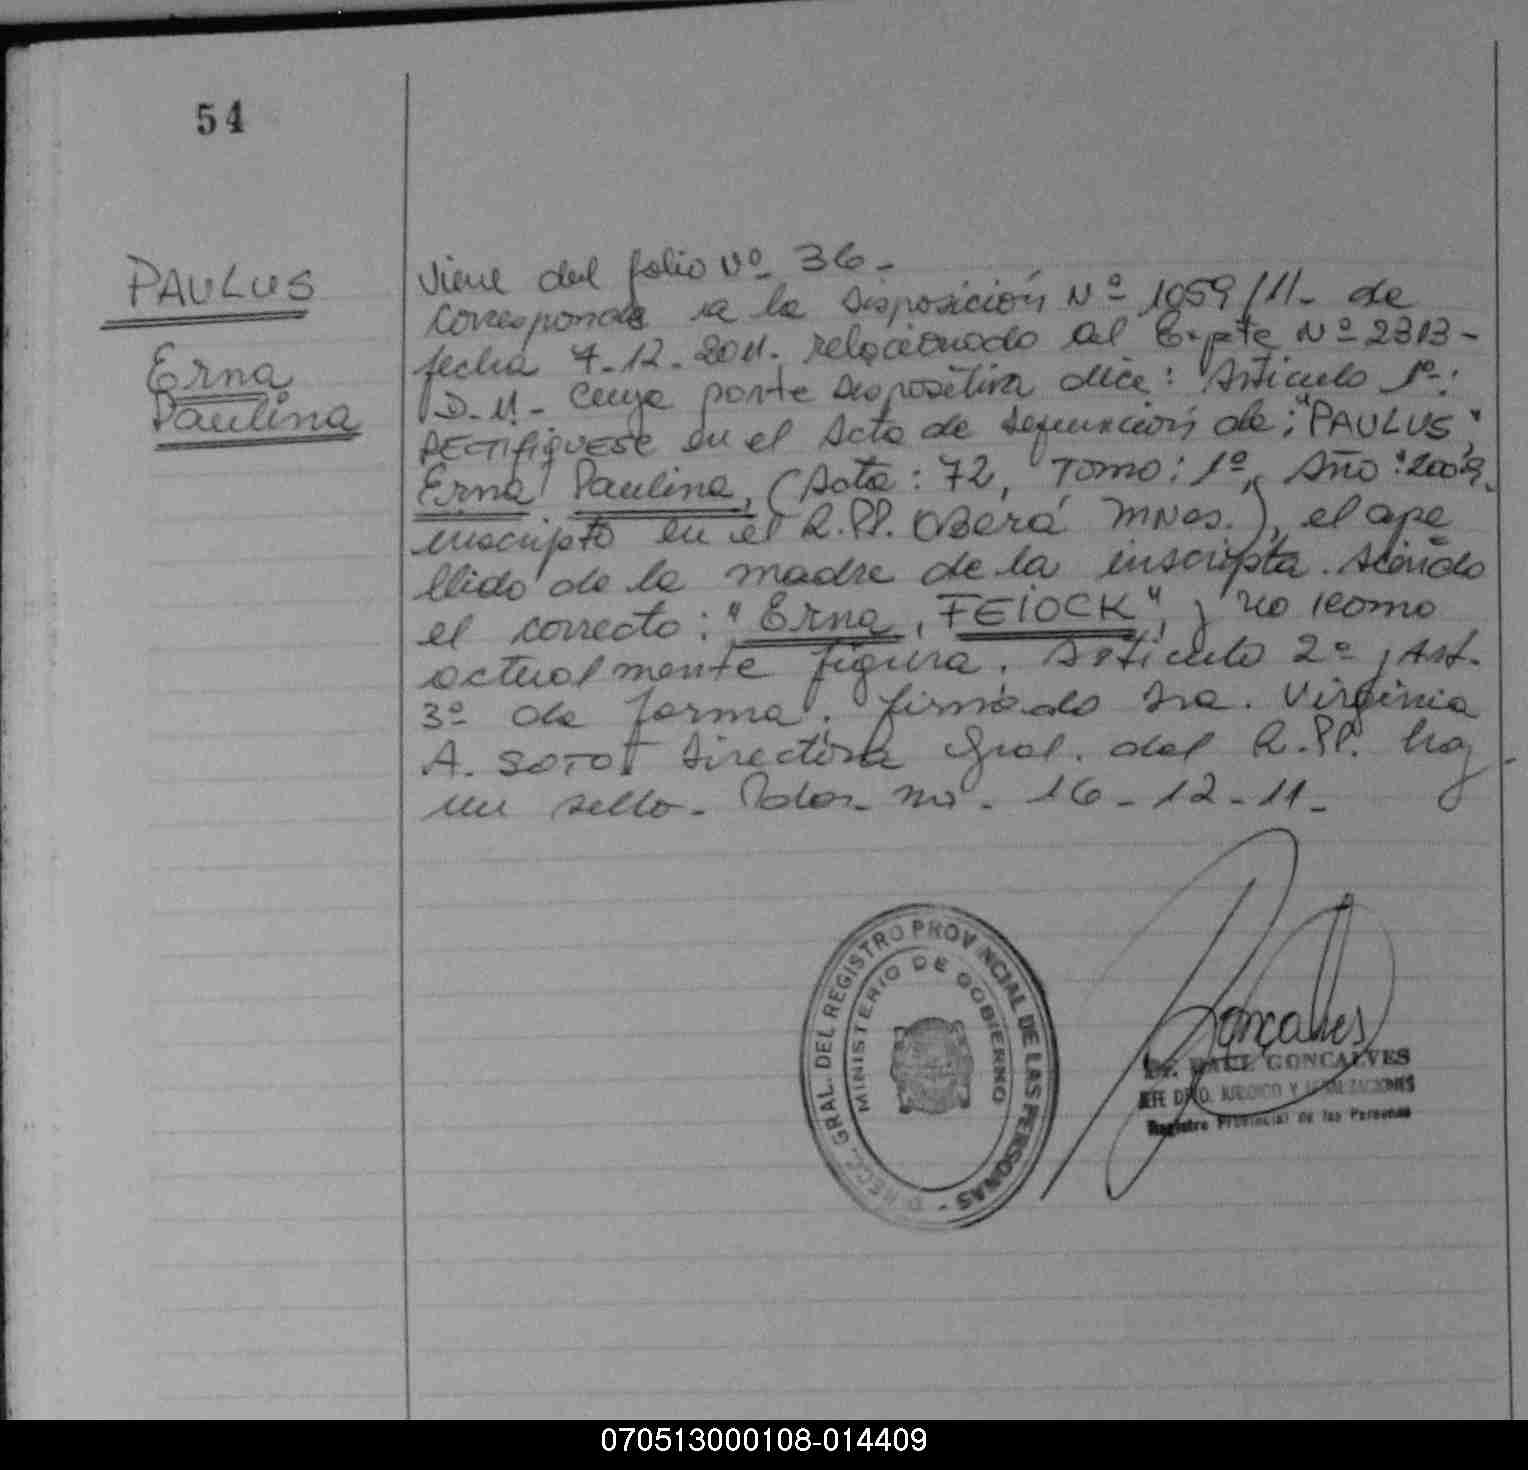 54
PAULUS
Erna
Paulina
Viene del folio Nº 36-
Corresponde a la Disposición Nº 1059/11- de
fecha 7-12-2011. relacionado al Expte Nº 2313-
D-11- Cuya parte Dispositiva dice: Articulo 1º:
RECTIFIQUESE en el Acta de defunción de: "PAULUS",
Erna Paulina, (Acta: 72, Tomo: 1º, Año: 2009,
inscripto en el R.PP. OBerá MNes.), el ape
llido de la madre de la inscripta. Siendo
el correcto: "Erna, FEIOCK", y no como
actualmente figura. Articulo 2º, Art.
3º de forma. firmado Sra. Virginia
A. SOTO. Directora Gral. del R.PP. hay
un sello- Pdas. Ms. 16-12-11-
DIRECC. GRAL. DEL REGISTRO PROVINCIAL DE LAS PERSONAS -
MINISTERIO DE GOBIERNO
Gonçalves
GONCALVES
JEFE DPTO. JURIDICO Y
Registro Provincial de las Personas
070513000108-014409